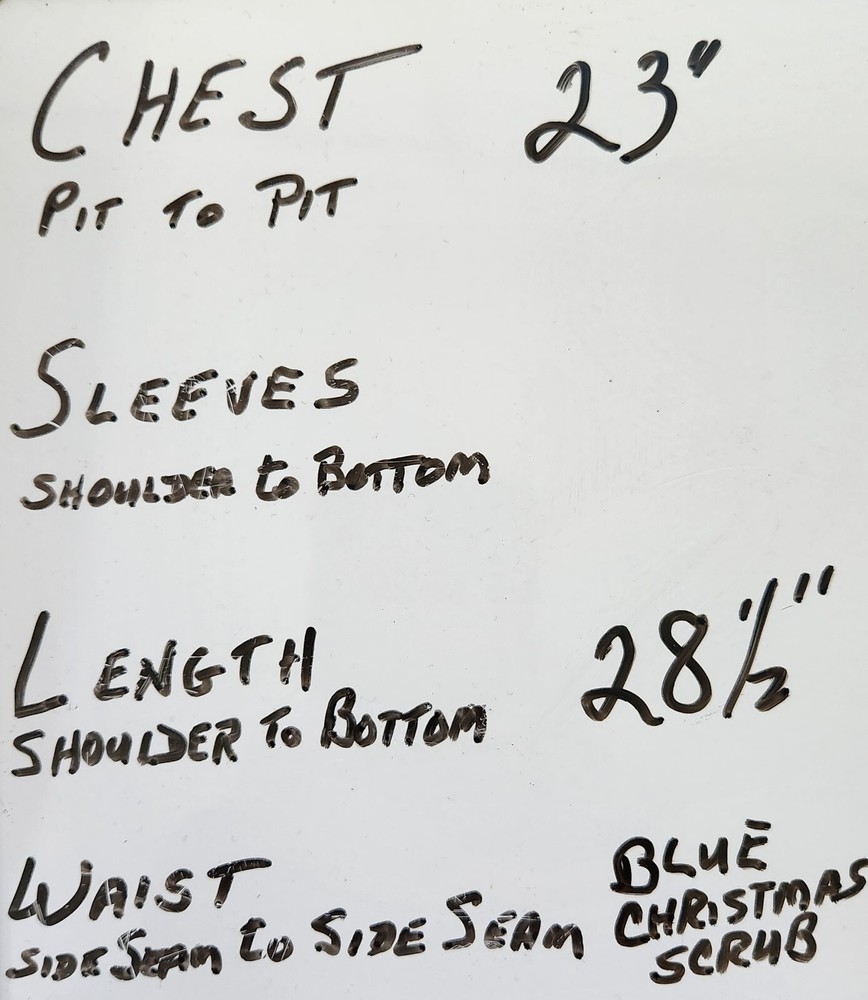 CHEST 23"
PIT TO PIT
SLEEVES
SHOULDER to BOTTOM
LENGTH 28 1/2"
SHOULDER TO BOTTOM
WAIST
SIDE SEAM to SIDE SEAM
BLUE
CHRISTMAS
SCRUB